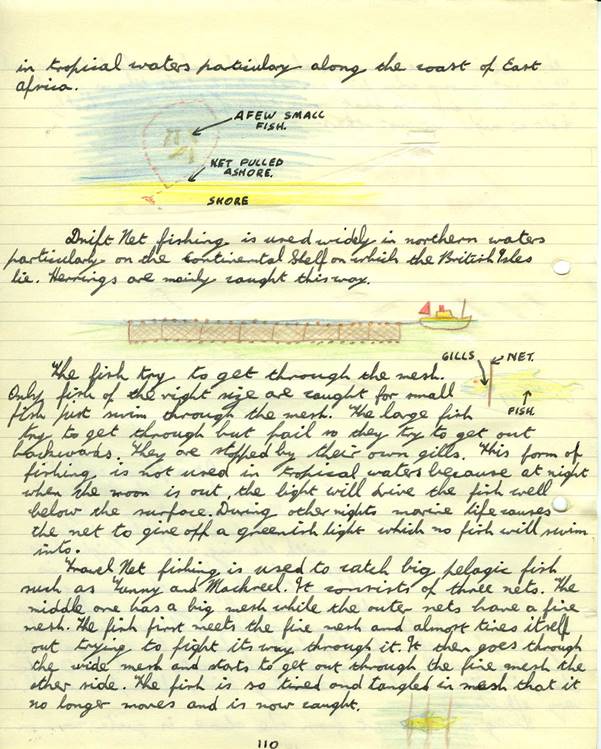 in tropical waters particulary along the coast of East
Africa.
A FEW SMALL
FISH.
NET PULLED
ASHORE.
SHORE
Drift Net fishing is used widely in northern waters
particulary on the continental Shelf on which the British Isles
lie. Herrings are mainly caught this way.
The fish try to get through the mesh.
GILLS
NET.
FISH
Only fish of the right size are caught for small
fish just swim through the mesh. The large fish
try to get through but fail so they try to get out
backwards. They are stopped by their own gills. This form of
fishing is not used in tropical waters because at night
when the moon is out, the light will drive the fish well
below the surface. During other nights marine life causes
the net to give off a greenish light which no fish will swim
into.
Travel Net fishing is used to catch big pelagic fish
such as Tunny and Mackreel. It consists of three nets. The
middle one has a big mesh while the outer nets have a fine
mesh. The fish first meets the fine mesh and almost tires itself
out trying to fight its way through it. It then goes through
the wide mesh and starts to get out through the fine mesh the
other side. The fish is so tired and tangled in mesh that it
no longer moves and is now caught.
110